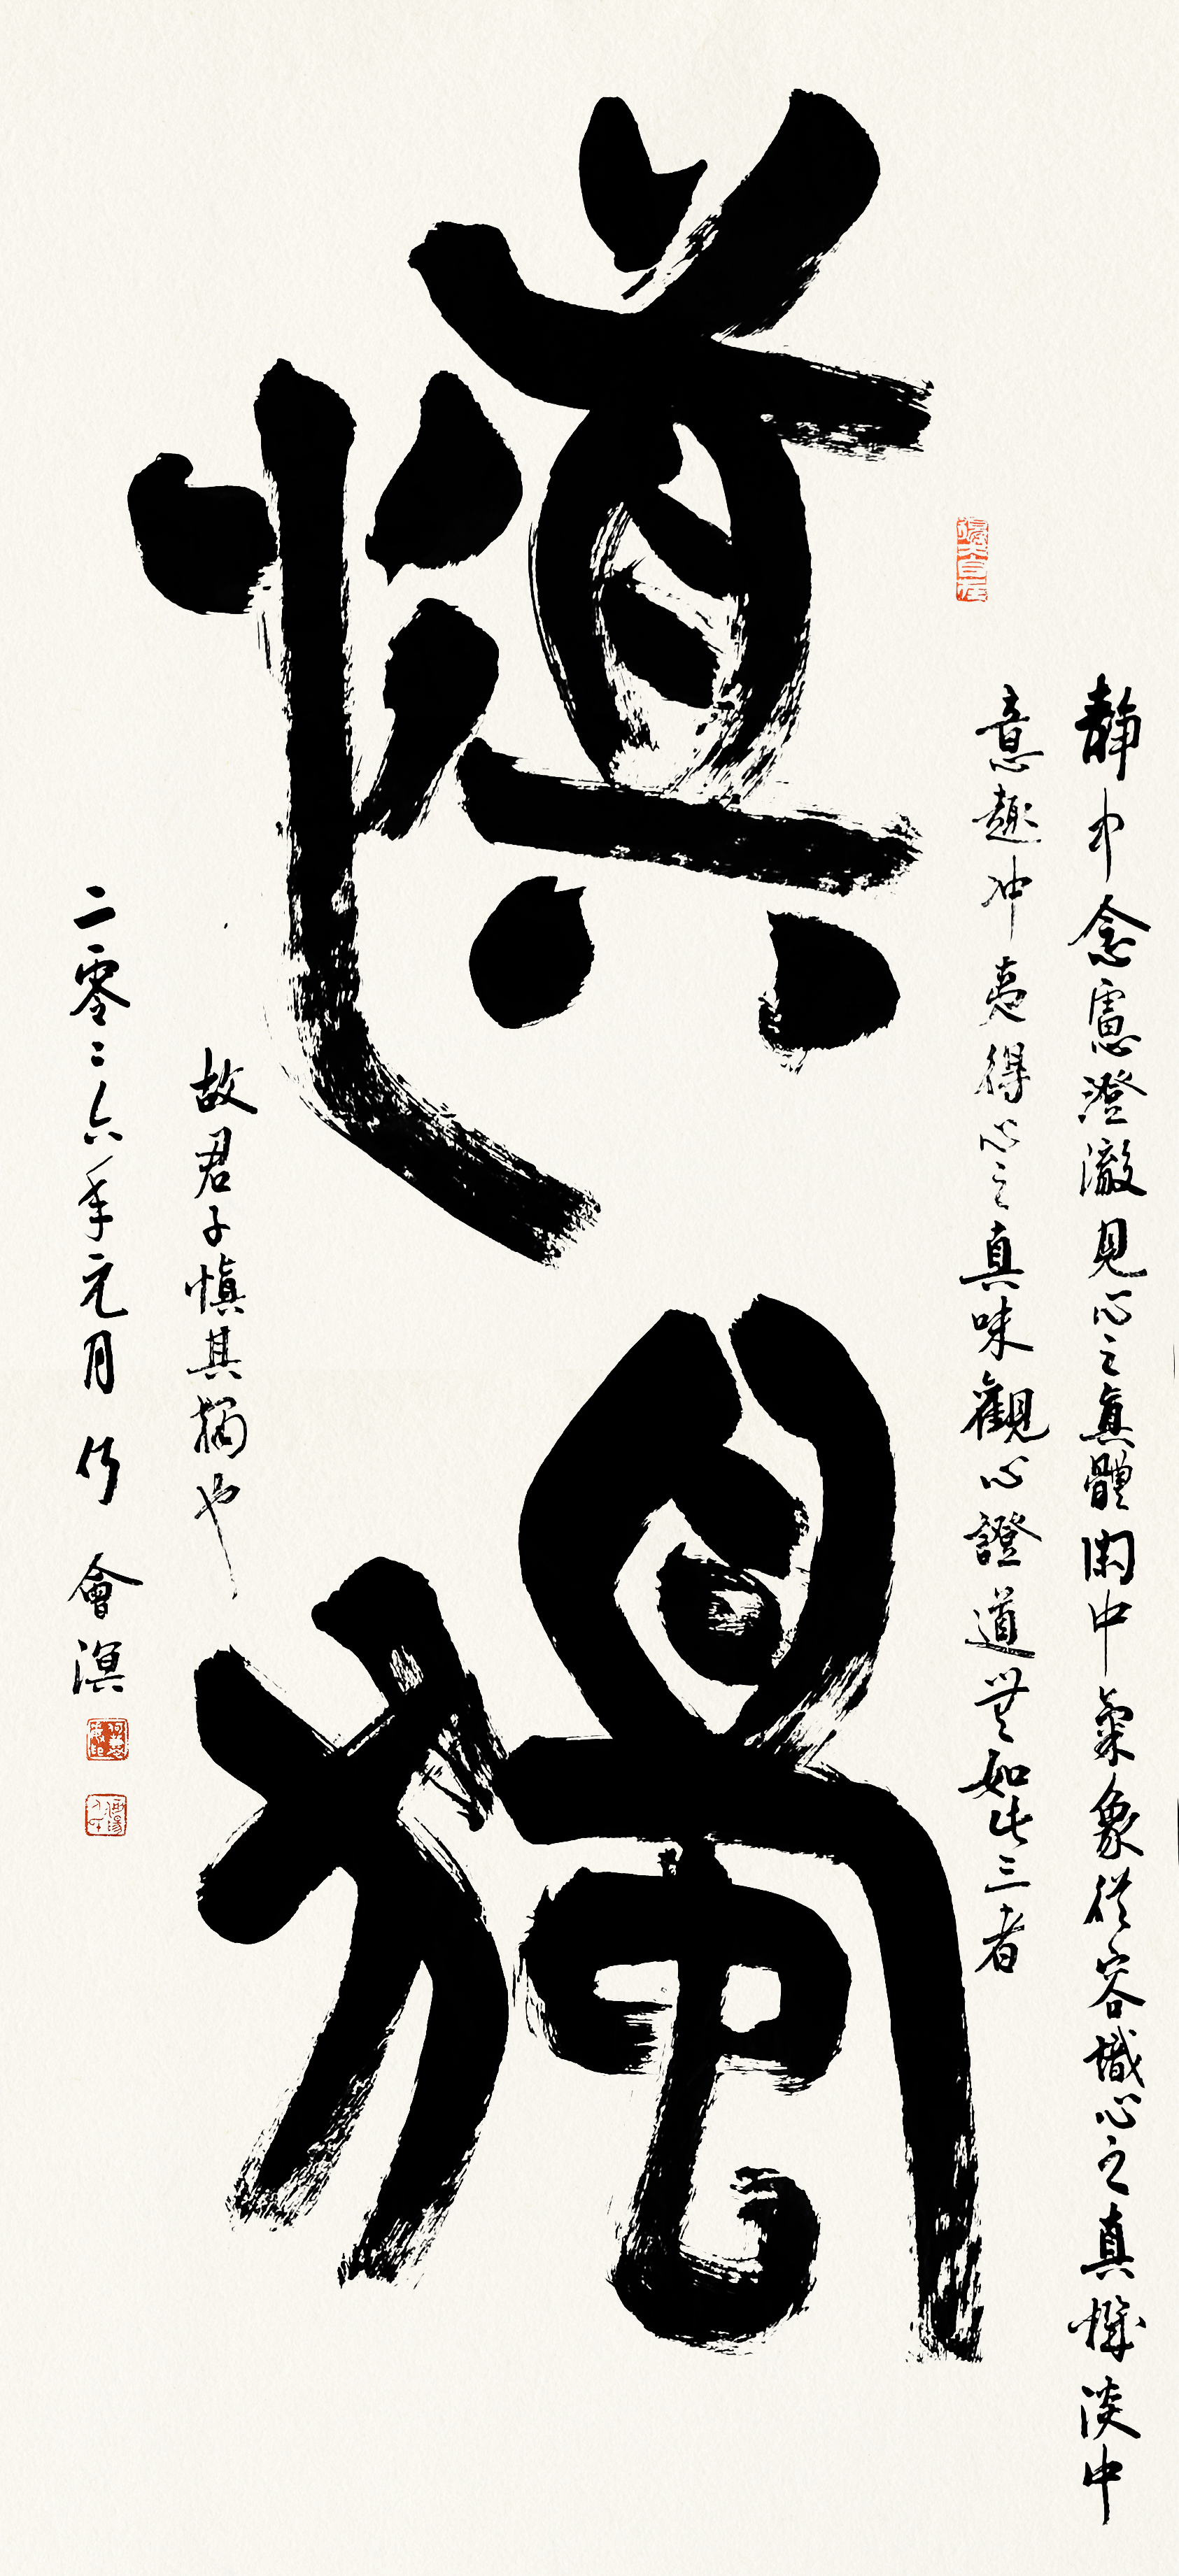 慎獨
靜中念慮澄澈見心之真體閑中氣象從容識心之真機淡中
意趣冲夷得心之真味觀心證道無如此三者
故君子慎其獨也
二零二六年元月 行 會溟